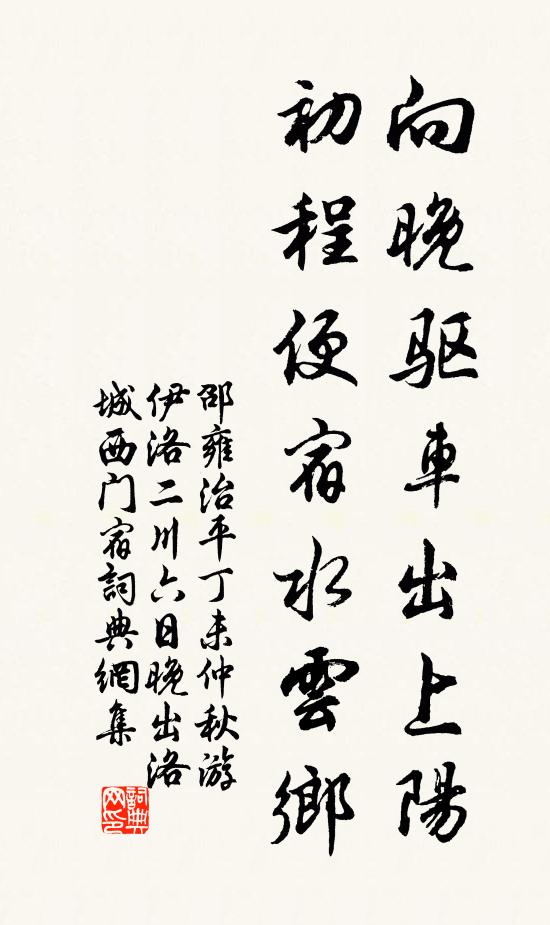 向晚驱車出上陽
初程便宿水雲鄉
邵雍治平丁未仲秋游
伊洛二川六日晚出洛
城西门宿詞典網集
詞典网印